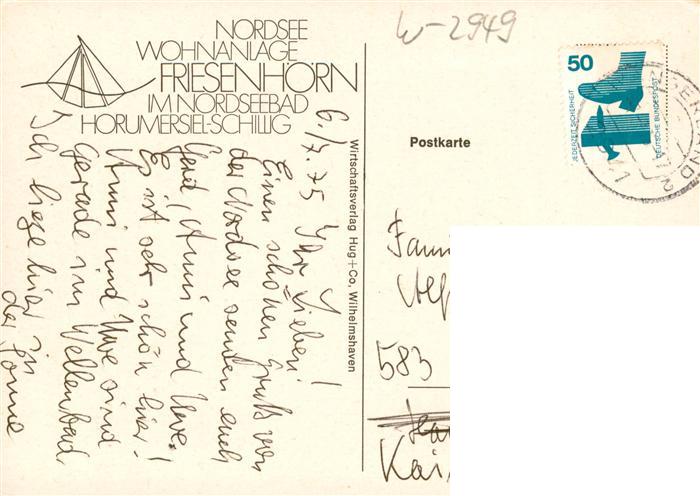 NORDSEE
WOHNANLAGE
FRIESENHÖRN
IM NORDSEEBAD
HORUMERSIEL-SCHILLIG
6.7.75
Ihr Lieben!
Einen schönen Gruß von
der Nordsee senden euch
Gerd, Anni und Uwe.
Es ist sehr schön hier!
Anni und Uwe sind
gerade im Wellenbad
Ich liege hier in
der Sonne
Wirtschaftsverlag Hug+Co, Wilhelmshaven
W-2949
Postkarte
50
JEDERZEIT SICHERHEIT
DEUTSCHE BUNDESPOST
Fam
583
Kai